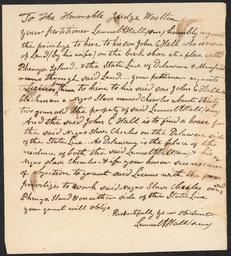 To The Honorable Judge Wootten
your petitioner Lemuel P. Hall, humbly requests
the privilege to hire to his son John C Hall who is owner
of Land (by his wife) on the back shore at a place called
Phenyx Island & the State Line of Delaware & Maryland
runs through said Land. your petitioner requests
a License from to hire to his said son John C Hall a
black man a Negro Slave named Charles about thirty
two years old the property of said Lemuel P. Hall
And the said John C Hall is to find a house for
the said Negro Slave Charles on the Delaware side
of the State Line. As Delaware is the place of the
residence of both the said Lemuel P. Hall and his
Negro Slave Charles & if your honor sees no cause
of objection to grant said License with the
priviledges to work said Negro Slave Charles on
Phenyx Island on either side of the State Line
your grant will oblige
Respectfully your obedient
Lemuel P. Hall